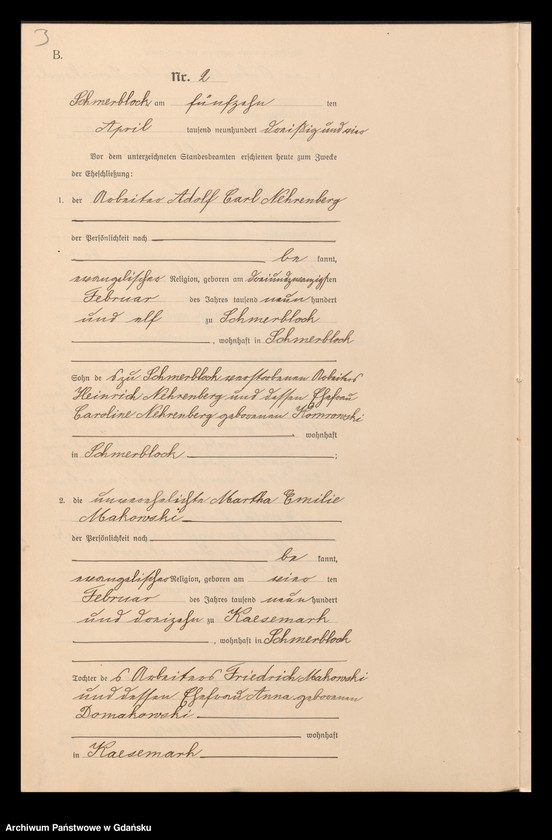 3
B.
Nr. 2
Schmerblock am fünfzehn ten
April tausend neunhundert dreißig und vier
Vor dem unterzeichneten Standesbeamten erschienen heute zum Zwecke
der Eheschließung:
1. der Arbeiter Adolf Carl Nehrenberg
der Persönlichkeit nach
be kannt,
evangelischer Religion, geboren am dreiundzwanzigsten
Februar des Jahres tausend neun hundert
und elf zu Schmerblock
, wohnhaft in Schmerblock
Sohn de s zu Schmerblock verstorbenen Arbeiters
Heinrich Nehrenberg und dessen Ehefrau
Caroline Nehrenberg geborenen Komrowski
wohnhaft
in Schmerblock ;
2. die unverehelichte Martha Emilie
Makowski
der Persönlichkeit nach
be kannt,
evangelischer Religion, geboren am vier ten
Februar des Jahres tausend neun hundert
und dreizehn zu Kaesemark
, wohnhaft in Schmerblock
Tochter de s Arbeiters Friedrich Makowski
und dessen Ehefrau Anna geborenen
Domakowski
wohnhaft
in Kaesemark
Archiwum Państwowe w Gdańsku